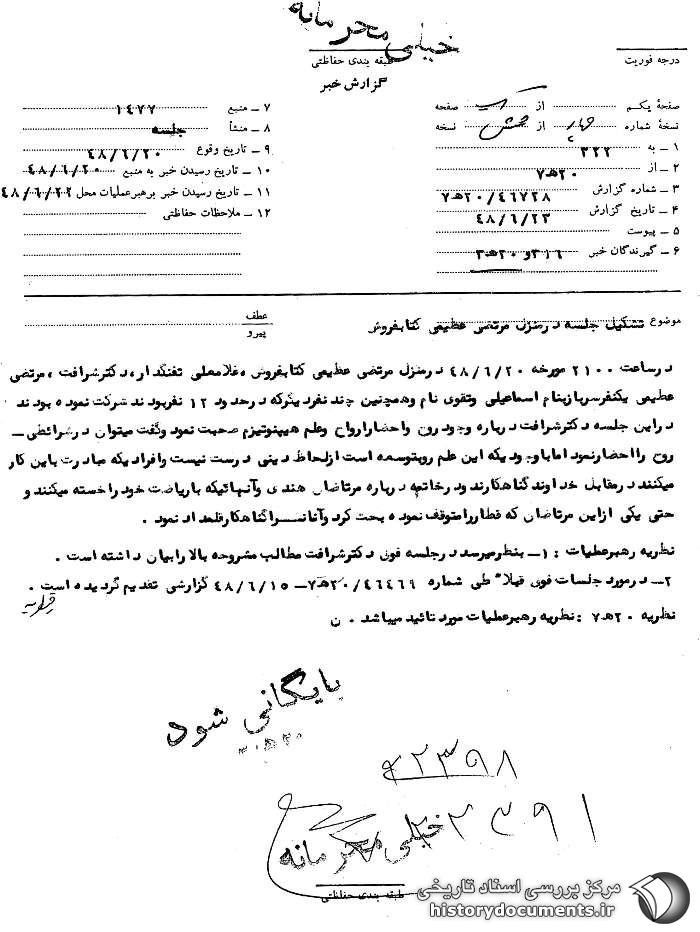 خیلی محرمانه
طبقه بندی حفاظتی
درجه فوریت
گزارش خبر
صفحهٔ یکم از یک صفحه
نسخهٔ شماره چهار از شش نسخه
۱ – به ۳۲۲
۲ – از ۲۰ھ۷
۳ – شماره گزارش ۲۰/۴۶۷۲۸ھ۷
۴ – تاریخ گزارش ۴۸/۶/۲۳
۵ – پیوست
۶ – گیرندگان خبر ۳۱۶ و ۲۰ھ۳
۷ – منبع ۱۴۷۷
۸ – منشأ جلسه
۹ – تاریخ وقوع ۴۸/۶/۲۰
۱۰ – تاریخ رسیدن خبر به منبع ۴۸/۶/۲۰
۱۱ – تاریخ رسیدن خبر برهبرعملیات محل ۴۸/۶/۲۲
۱۲ – ملاحظات حفاظتی
موضوع تشکیل جلسه درمنزل مرتضی عظیمی کتابفروش
عطف
پیرو
درساعت ۲۱۰۰ مورخه ۴۸/۶/۲۰ درمنزل مرتضی عظیمی کتابفروش، غلامعلی تفنگدار، دکترشرافت، مرتضی
عظیمی یکنفرسربازبنام اسماعیلی وتقوی نام وهمچنین چند نفردیگرکه درحدود ۱۲ نفربودند شرکت نموده بودند
دراین جلسه دکترشرافت درباره وجود روح واحضارارواح وعلم هیپنوتیزم صحبت نمود وگفت میتوان درشرائطی –
روح رااحضارنمود اماباوجودیکه این علم روبتوسعه است ازلحاظ دینی درست نیست وافرادیکه مبادرت باین کار
میکنند درمقابل خداوند گناهکارند ودرخاتمه درباره مرتاضان هندی وآنهائیکه باریاضت خود راخسته میکنند و
حتی یکی ازاین مرتاضان که قطاررامتوقف نموده بحث کرد وآنانسراگناهکارقلمداد نمود .
نظریه رهبرعملیات : ۱ – بنظرمیرسد درجلسه فوق دکترشرافت مطالب مشروحه بالارابیان داشته است .
۲ – درمورد جلسات فوق قبلاً طی شماره ۲۰/۴۶۴۶۹ھ۷ – ۴۸/۶/۱۵ گزارشی تقدیم گردیده است .
نظریه ۲۰ھ۷ : نظریه رهبرعملیات مورد تائید میباشد . ن
بایگانی شود
۲۳۹۸
۲۲۳۹۱
خیلی محرمانه
طبقه بندی حفاظتی
مرکز بررسی اسناد تاریخی
historydocuments.ir